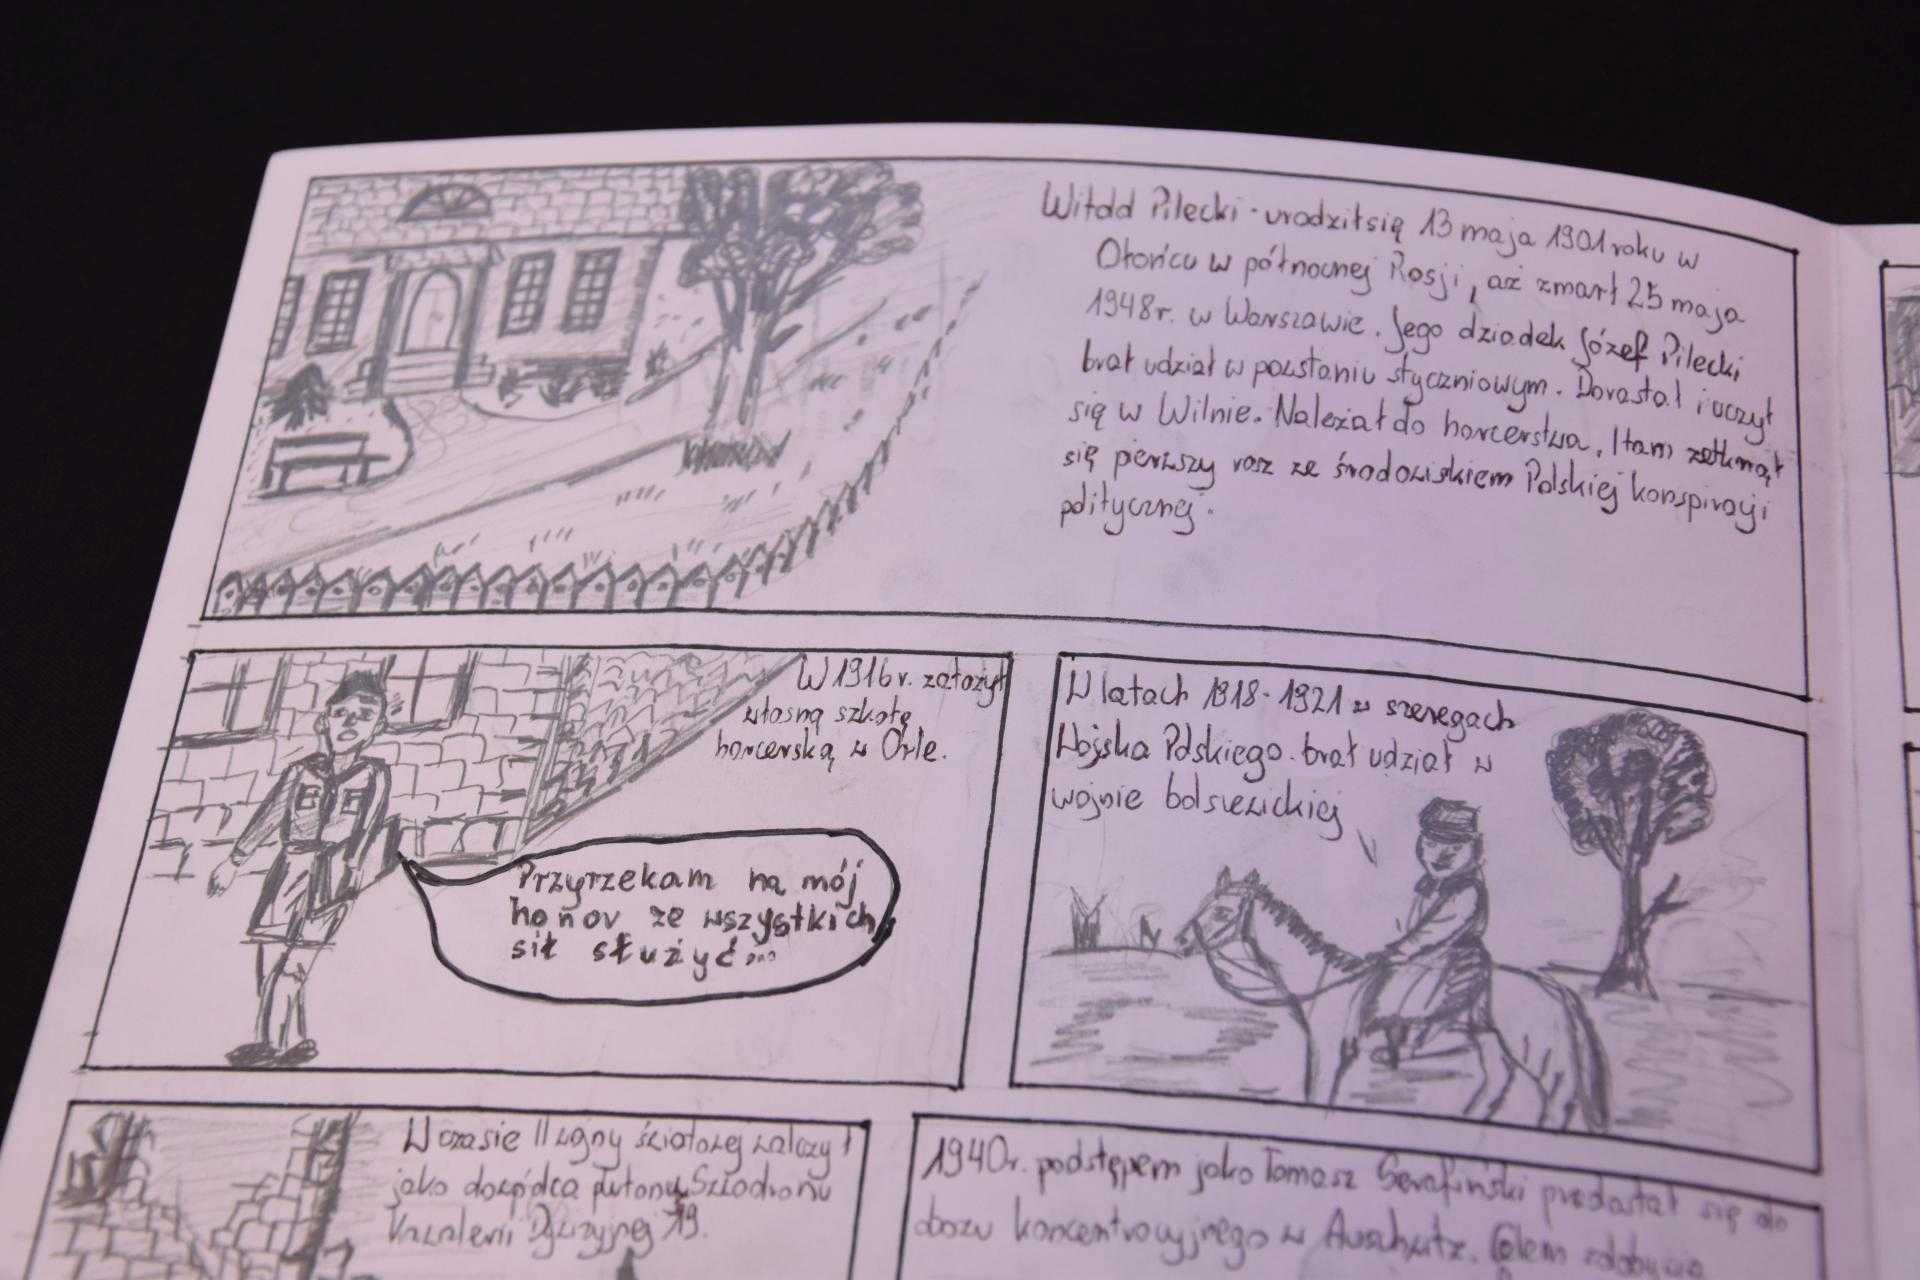 Witold Pilecki - urodził się 13 maja 1901 roku w
Ołońcu w północnej Rosji, aż zmarł 25 maja
1948 r. w Warszawie. Jego dziadek Józef Pilecki
brał udział w powstaniu styczniowym. Dorastał i uczył
się w Wilnie. Należał do harcerstwa. I tam zetknął
się pierwszy raz ze środowiskiem Polskiej konspiracji
politycznej.
W 1916 r. założył
własną szkołę
harcerską w Orle.
Przyrzekam na mój
honor ze wszystkich
sił służyć...
W latach 1918-1921 w szeregach
Wojska Polskiego. brał udział w
wojnie bolszewickiej
W czasie II wojny światowej walczył
jako dowódca plutonu Szwadronu
Kawalerii Dywizyjnej 19.
1940r. podstępem jako Tomasz Serafiński przedostał się do
obozu koncentracyjnego w Auschwitz. Celem zdobycia